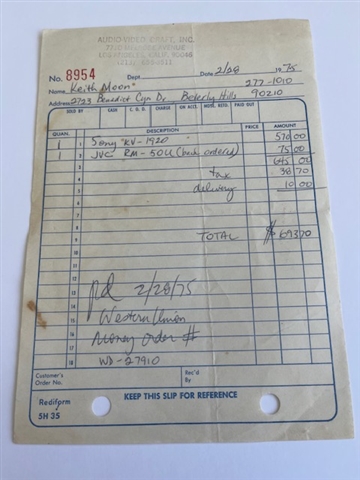 AUDIO VIDEO CRAFT, INC.
LOS ANGELES, CALIF. 90046
No. 8954 Dept. Date 2/28 1975
Name Keith Moon 277-1010
Address 2723 Benedict Cyn Dr Beverly Hills 90210
SOLD BY CASH C. O. D. CHARGE ON ACCT. MDSE. RETD. PAID OUT
QUAN. DESCRIPTION PRICE AMOUNT
1 1 Sony "KV-1920" 570.00
1 2 JVC RM-50U (back ordered) 75.00
3 645 00
4 tax 38 70
5 delivery 10.00
6
7
8
9 TOTAL $ 693 70
10
11
12
13 pd 2/28/75
14
15 Western Union
16 Money order #
17
18 WD-27910
Customer's
Order No.
Rec'd
By
Rediform
5H 35
KEEP THIS SLIP FOR REFERENCE